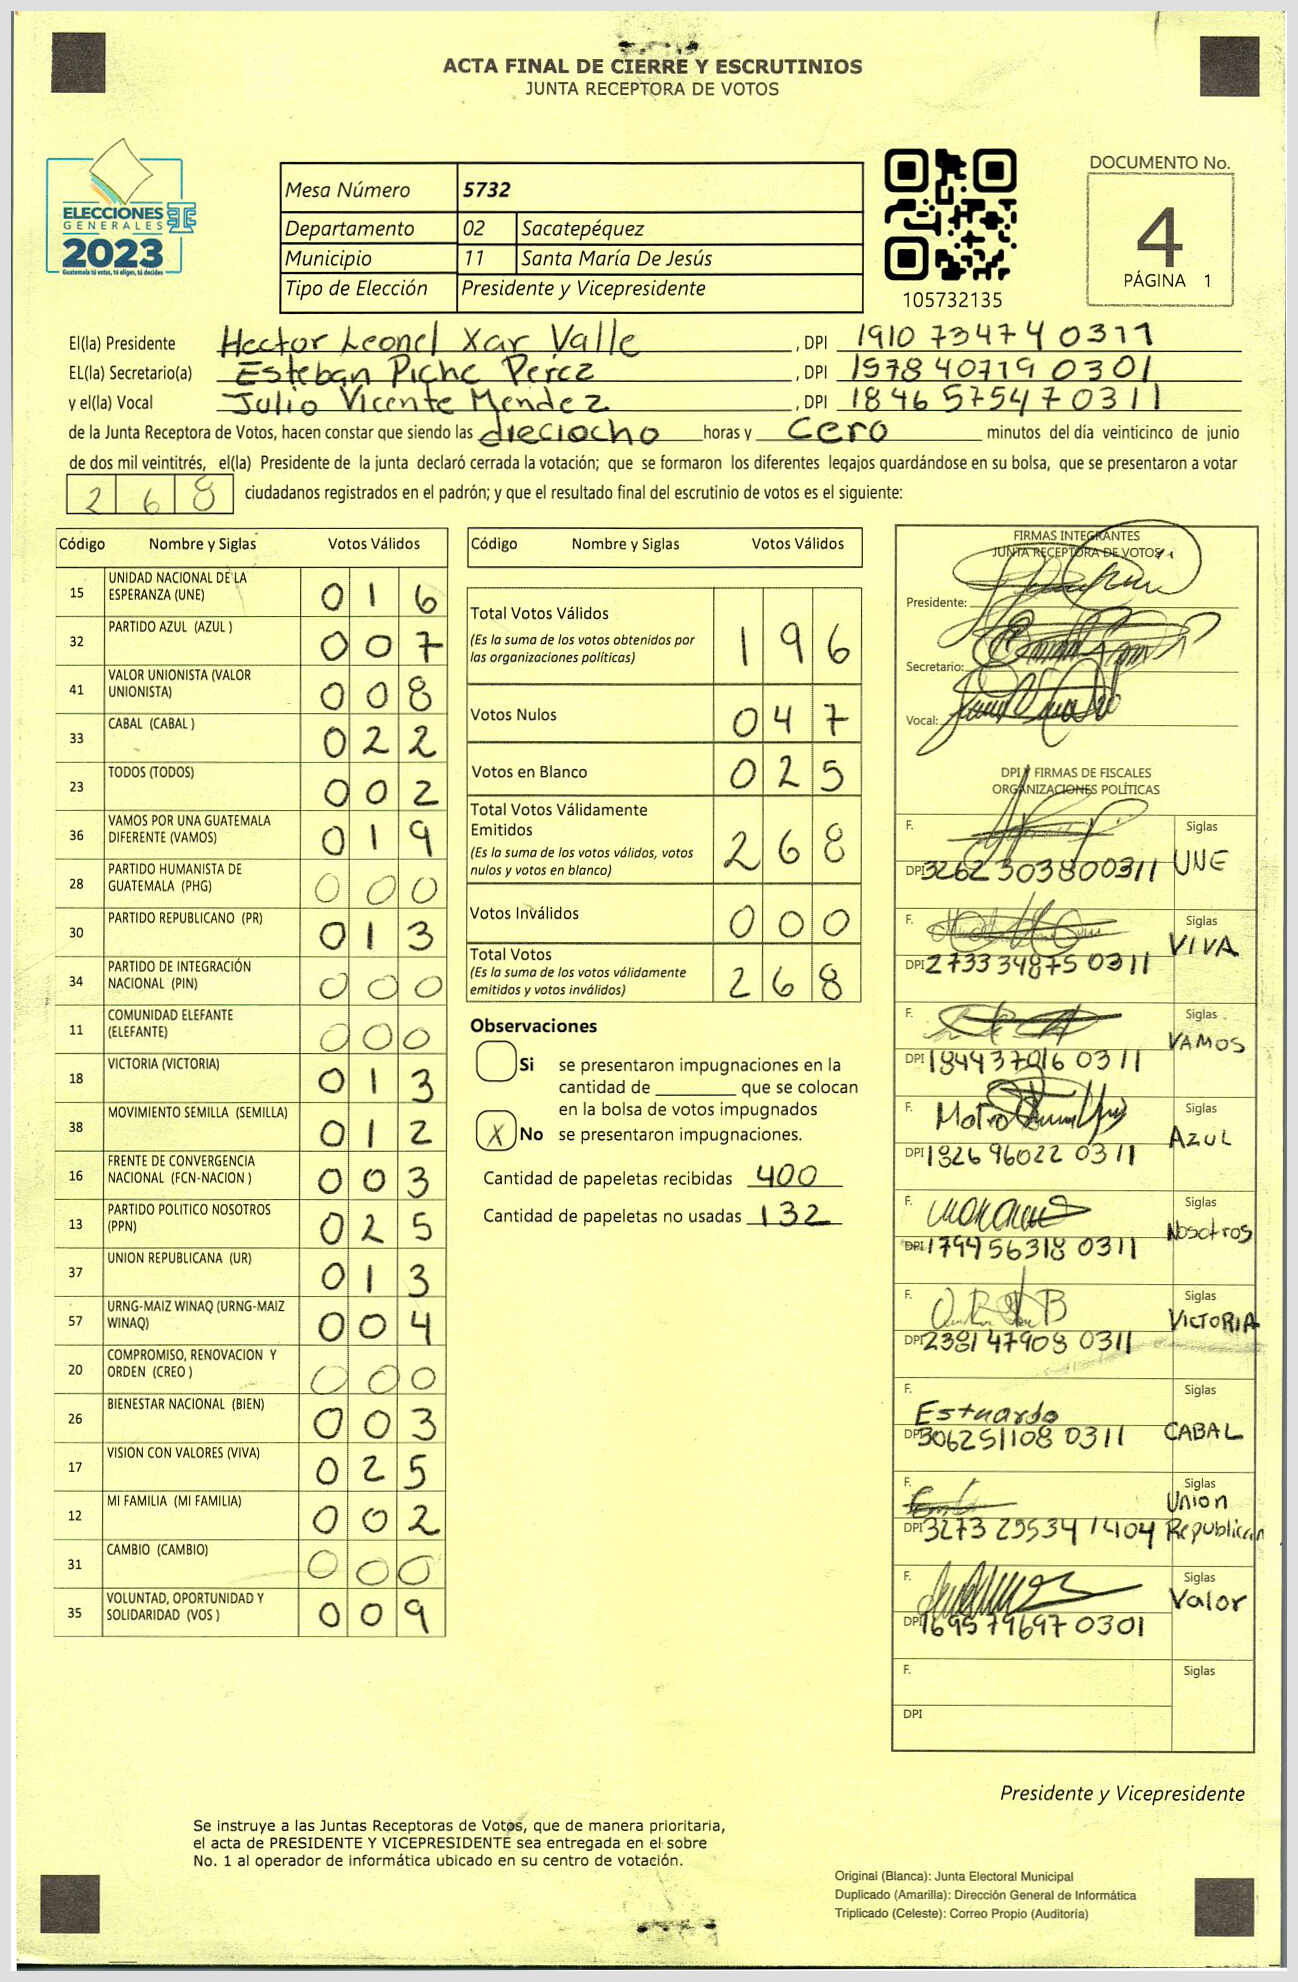 ACTA FINAL DE CIERRE Y ESCRUTINIOS
JUNTA RECEPTORA DE VOTOS
ELECCIONES
GENERALES
2023
Guatemala tú votas, tú eliges, tú decides
Mesa Número 5732
Departamento 02 Sacatepéquez
Municipio 11 Santa María De Jesús
Tipo de Elección Presidente y Vicepresidente
105732135
DOCUMENTO No.
4
PÁGINA 1
El(la) Presidente Hector Leonel Xar Valle, DPI 1910 73474 0311
EL(la) Secretario(a) Esteban Piche Perez, DPI 15784 0719 0301
y el(la) Vocal Julio Vicente Mendez, DPI 1846 57547 0311
de la Junta Receptora de Votos, hacen constar que siendo las dieciocho horas y cero minutos del día veinticinco de junio
de dos mil veintitrés, el(la) Presidente de la junta declaró cerrada la votación; que se formaron los diferentes legajos quardándose en su bolsa, que se presentaron a votar
268 ciudadanos registrados en el padrón; y que el resultado final del escrutinio de votos es el siguiente:
Código Nombre y Siglas Votos Válidos
15 UNIDAD NACIONAL DE LA ESPERANZA (UNE) 016
32 PARTIDO AZUL (AZUL ) 007
41 VALOR UNIONISTA (VALOR UNIONISTA) 008
33 CABAL (CABAL ) 022
23 TODOS (TODOS) 002
36 VAMOS POR UNA GUATEMALA DIFERENTE (VAMOS) 019
28 PARTIDO HUMANISTA DE GUATEMALA (PHG) 000
30 PARTIDO REPUBLICANO (PR) 013
34 PARTIDO DE INTEGRACIÓN NACIONAL (PIN) 000
11 COMUNIDAD ELEFANTE (ELEFANTE) 000
18 VICTORIA (VICTORIA) 013
38 MOVIMIENTO SEMILLA (SEMILLA) 012
16 FRENTE DE CONVERGENCIA NACIONAL (FCN-NACION ) 003
13 PARTIDO POLITICO NOSOTROS (PPN) 025
37 UNION REPUBLICANA (UR) 013
57 URNG-MAIZ WINAQ (URNG-MAIZ WINAQ) 004
20 COMPROMISO, RENOVACION Y ORDEN (CREO ) 000
26 BIENESTAR NACIONAL (BIEN) 003
17 VISION CON VALORES (VIVA) 025
12 MI FAMILIA (MI FAMILIA) 002
31 CAMBIO (CAMBIO) 000
35 VOLUNTAD, OPORTUNIDAD Y SOLIDARIDAD (VOS ) 009
Código Nombre y Siglas Votos Válidos
Total Votos Válidos 196
(Es la suma de los votos obtenidos por
las organizaciones políticas)
Votos Nulos 047
Votos en Blanco 025
Total Votos Válidamente
Emitidos 268
(Es la suma de los votos válidos, votos
nulos y votos en blanco)
Votos Inválidos 000
Total Votos 268
(Es la suma de los votos válidamente
emitidos y votos inválidos)
Observaciones
Si se presentaron impugnaciones en la
cantidad de que se colocan
en la bolsa de votos impugnados
X No se presentaron impugnaciones.
Cantidad de papeletas recibidas 400
Cantidad de papeletas no usadas 132
FIRMAS INTEGRANTES
JUNTA RECEPTORA DE VOTOS
Presidente:
Secretario:
Vocal:
DPI Y FIRMAS DE FISCALES
ORGANIZACIONES POLÍTICAS
F. Siglas
DPI 3262 303800311 UNE
F. Siglas
DPI 2733 34875 0311 VIVA
F. Siglas
DPI 1844 37016 0311 VAMOS
F. Siglas
DPI 1826 96022 0311 AZUL
F. Siglas
DPI 1794 56318 0311 Nosotros
F. Siglas
DPI 2381 47908 0311 VICTORIA
F. Estuardo Siglas
DPI 306251108 0311 CABAL
F. Siglas
DPI 3273 29534 1404 Union Republican
F. Siglas
DPI 1695 79697 0301 Valor
F. Siglas
DPI
Presidente y Vicepresidente
Se instruye a las Juntas Receptoras de Votos, que de manera prioritaria,
el acta de PRESIDENTE Y VICEPRESIDENTE sea entregada en el sobre
No. 1 al operador de informática ubicado en su centro de votación.
Original (Blanca): Junta Electoral Municipal
Duplicado (Amarilla): Dirección General de Informática
Triplicado (Celeste): Correo Propio (Auditoría)